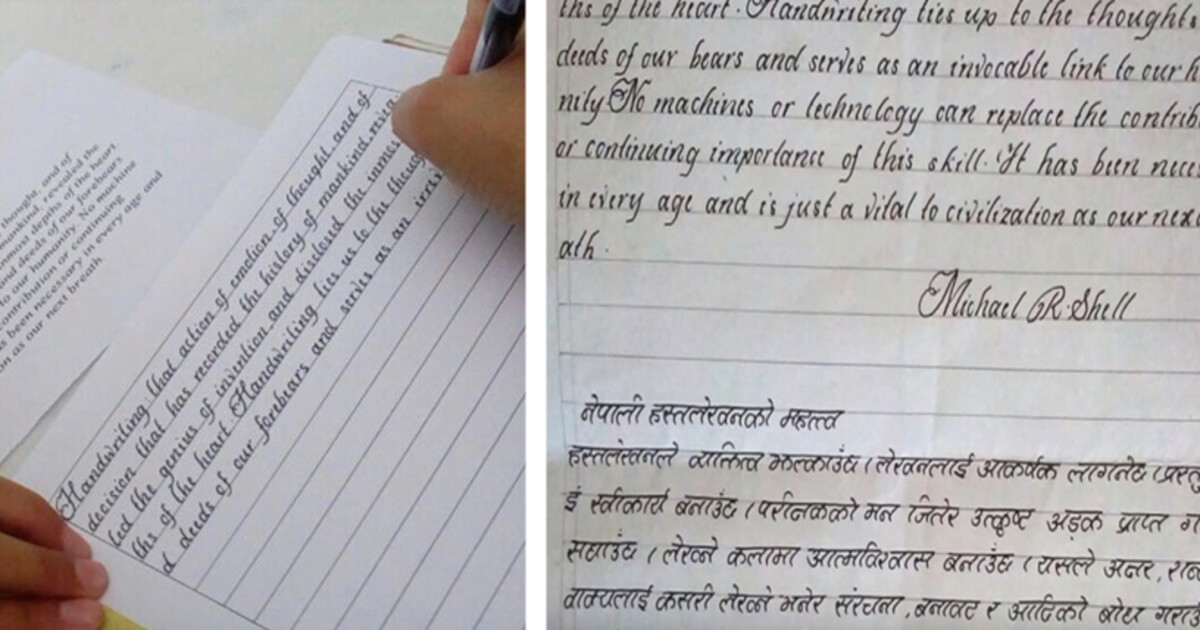 thought, and of
mankind, revealed the
inmost depths of the heart
and deeds of our forebears
to our humanity. No machine
contribution or continuing
as been necessary in every age and
on as our next breath.
Handwriting: that action of emotion of thought and of
decision that has recorded the history of mankind
led the genius of invention, and disclosed the inmost
ths of the heart. Handwriting ties us to the
d deeds of our forebears and serves as an
ths of the heart. Handwriting ties up to the thoughts
deeds of our bears and serves as an invocable link to our h
nity No machines or technology can replace the contrib
or continuing importance of this skill. It has been neces
in every age and is just a vital to civilization as our nex
ath.
Michael R. Shell
नेपाली हस्तलेखनको महत्त्व
हस्तलेखनले व्यक्तित्व झल्काउँछ । लेखनलाई आकर्षक लागनेछ ।
इं स्वीकार्य बनाउँछ । परीक्षकको मन जितेर उत्कृष्ट अङ्क प्राप्त ग
सघाउँछ । लेख्ने कलामा आत्मविश्वास बनाउँछ । यसले अक्षर,
वाक्यलाई कसरी लेख्ने भनेर संरचना, बनावट र आदिको बोध गराउ